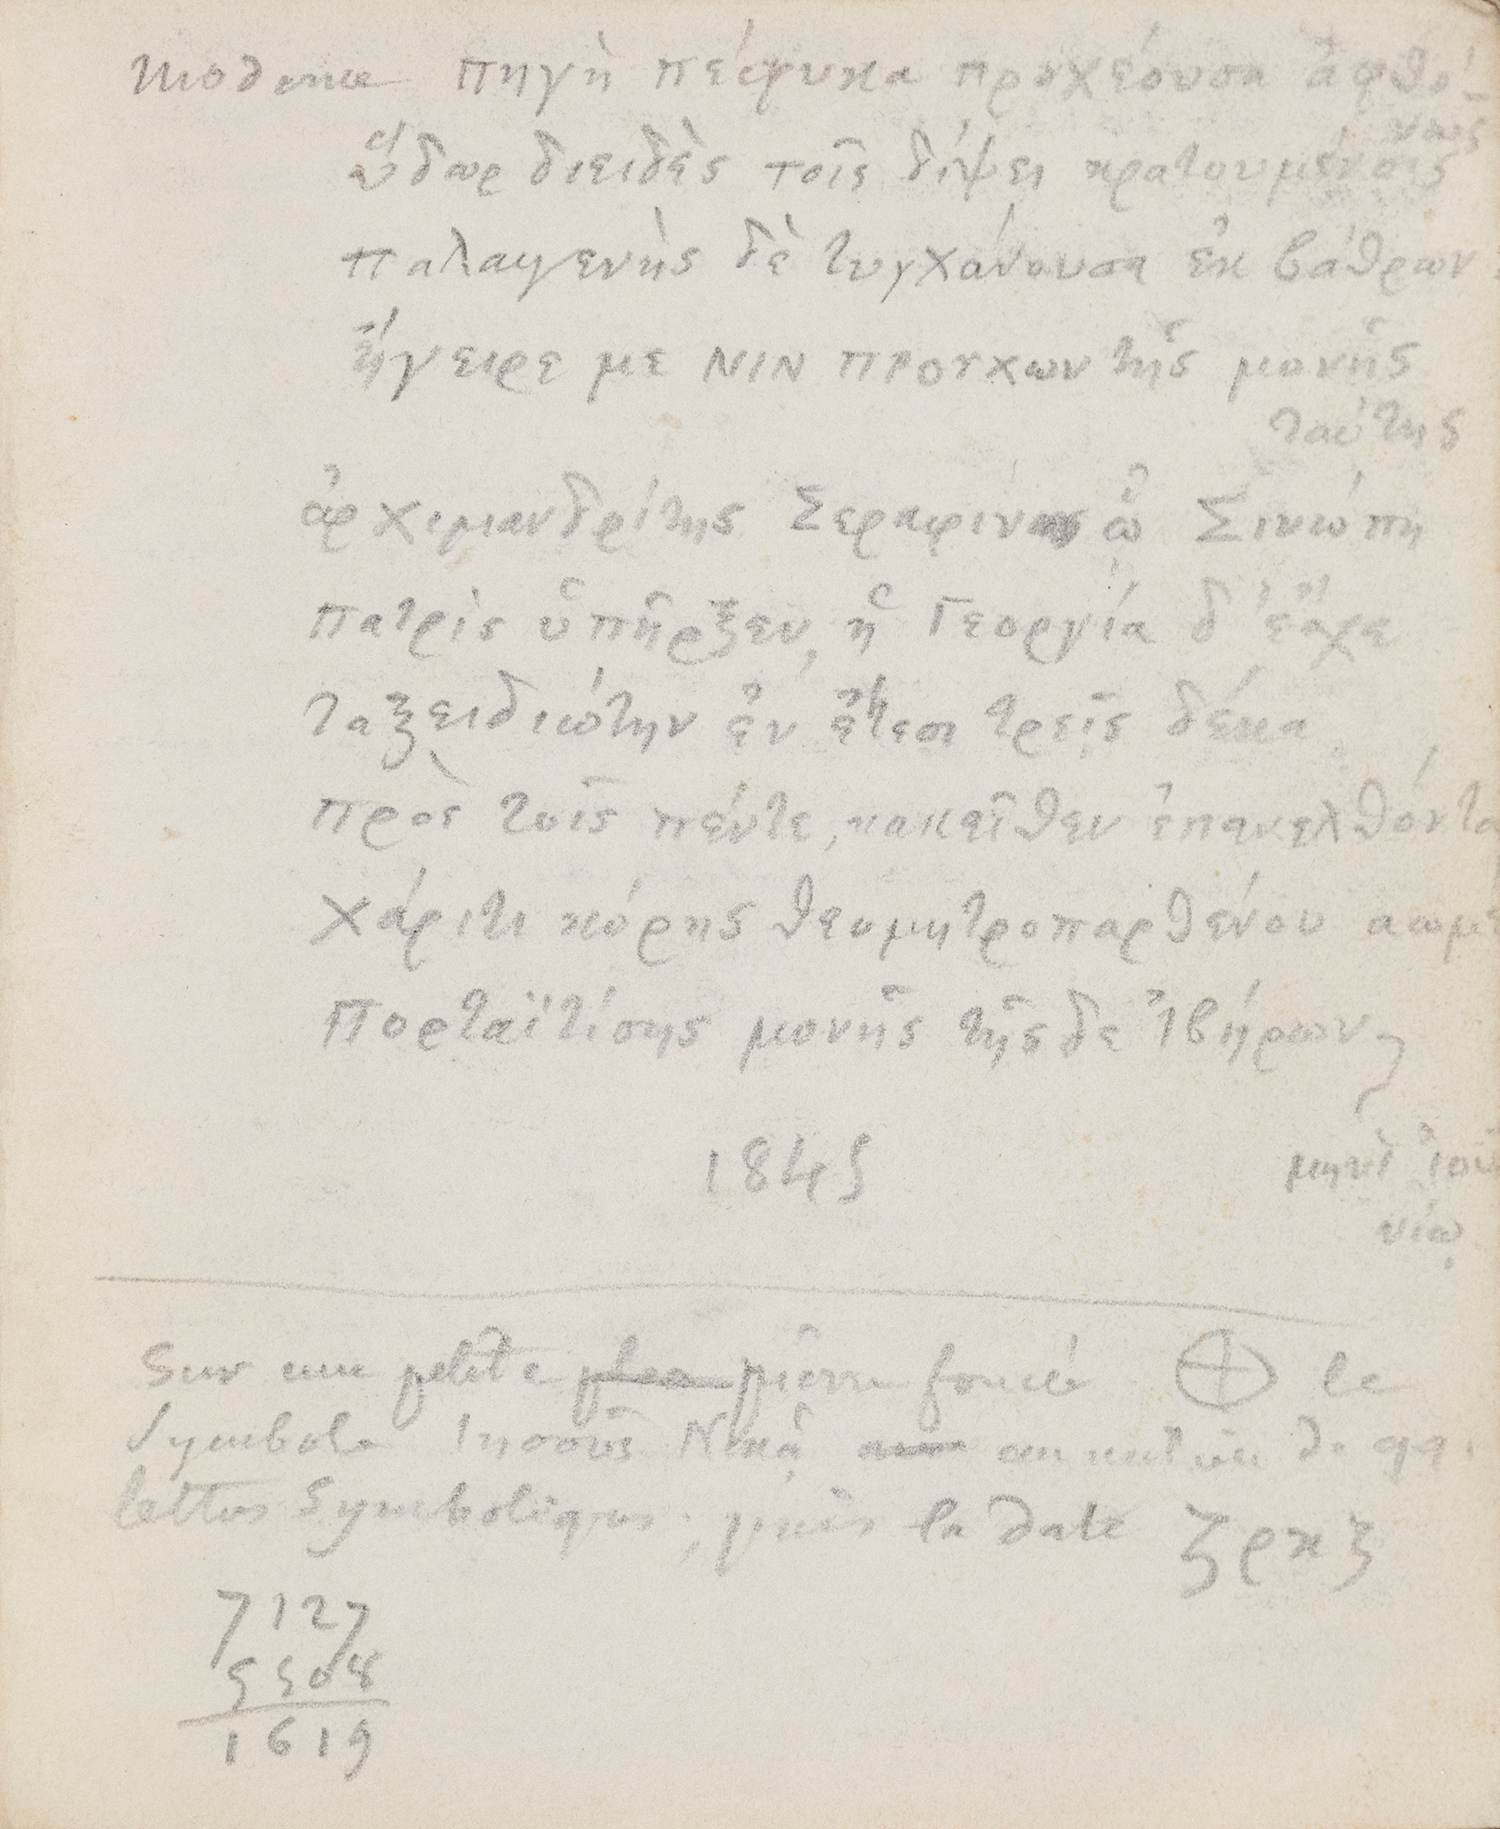 Moderne πηγὴ πέφυκα προχέουσα ἀφθό-
νως
ὕδωρ διειδὲς τοῖς δίψει κρατουμένοις
παλαιγενὴς δὲ τυγχάνουσα ἐκ βάθρων
ἤγειρε με ΝΙΝ ΠΡΟΥΧων τῆς μονῆς
ταύτης
ἀρχιμανδρίτης Σεραφίνος ᾧ Σινώπη
πατρὶς ὑπῆρξεν, ἡ Γεοργία δ' ἔσχε
ταξειδιώτην ἐν ἔτεσι τρεῖς δέκα
πρὸς τοῖς πέντε, κακεῖθεν ἐπανελθόντα
χάριτι κόρης θεομητροπαρθένου αωμε
Πορταϊτίσης μονῆς τῆς δε Ἰβήρων
1845 μηνὶ ἰου
νίῳ
Sur une petite pierre foncée ⊕ le
Symbole Ιησοῦς Νικᾷ au milieu de qq.
lettres Symboliques, puis la date ζρκζ
7127
5508
1619